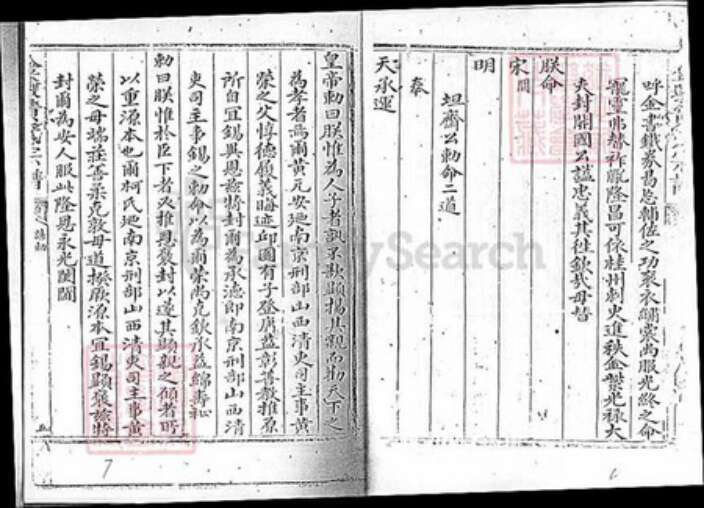 吁金書鐵券曷忘輔佐之功袞衣繡裳尚服光終之命
寵靈弗替祚胤隆昌可依桂州刺史進秩金紫光祿大
夫封開國公謚忠義其往欽哉毋替
朕命
宋
明
坦齋公勅命二道
奉
天承運
皇帝勅曰朕惟為人子者孰不欲顯揚其親而勅天下之
為孝者焉爾黃元安迺南京刑部山西清吏司主事黃
榮之父惇德履義晦迹邱園有子登庸益彰善教推原
所自宜錫異恩茲特封爾為承德郎南京刑部山西清
吏司主事錫之勅命以為爾榮尚克欽承益綿壽祉
勅曰朕惟於臣下者必推恩褒封以遂其顯親之願者所
以重源本也爾柯氏迺南京刑部山西清吏司主事黃
榮之母端莊善柔克敦母道揆厥源本宜錫顯褒茲特
封爾為安人服此隆恩永光閨閫
7
6
FamilySearch